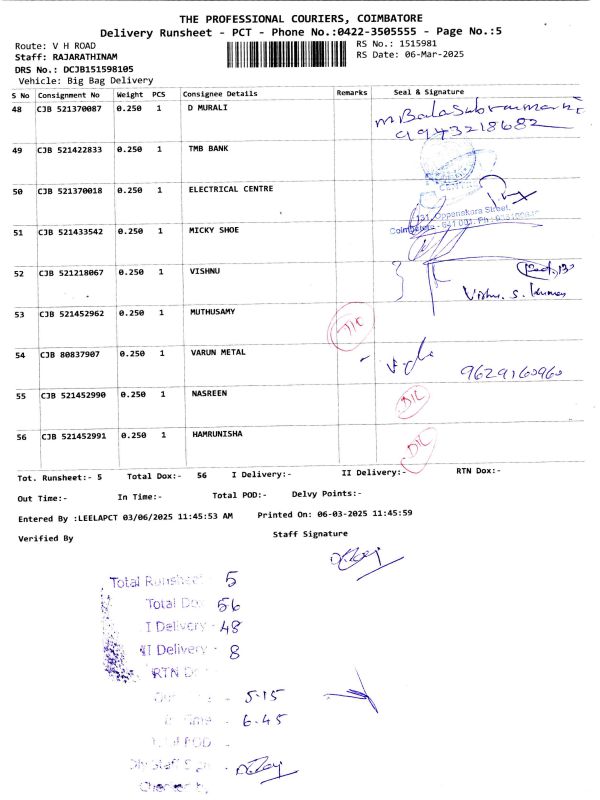 THE PROFESSIONAL COURIERS, COIMBATORE
Delivery Runsheet - PCT - Phone No.:0422-3505555 - Page No.:5
Route: V H ROAD
RS No.: 1515981
Staff: RAJARATHINAM
RS Date: 06-Mar-2025
DRS No.: DCJB151598105
Vehicle: Big Bag Delivery
S No Consignment No Weight PCS Consignee Details Remarks Seal & Signature
48 CJB 521370087 0.250 1 D MURALI
9943218682
49 CJB 521422833 0.250 1 TMB BANK
50 CJB 521370018 0.250 1 ELECTRICAL CENTRE
131, Oppanakara Street,
51 CJB 521433542 0.250 1 MICKY SHOE
52 CJB 521218067 0.250 1 VISHNU
Vishnu. S. Kumar
53 CJB 521452962 1 MUTHUSAMY
54 CJB 80837907 0.250 1 VARUN METAL
9629160960
55 CJB 521452990 0.250 1 NASREEN
DIC
56 CJB 521452991 0.250 1 HAMRUNISHA
DIC
Tot. Runsheet:- 5 Total Dox:- 56 I Delivery:- II Delivery:- RTN Dox:-
Out Time:- In Time:- Total POD:- Delvy Points:-
Entered By :LEELAPCT 03/06/2025 11:45:53 AM Printed On: 06-03-2025 11:45:59
Verified By Staff Signature
Total Runsheet - 5
Total Dox 56
I Delivery - 48
II Delivery - 8
RTN
- 5.15
Time - 6.45
POD -